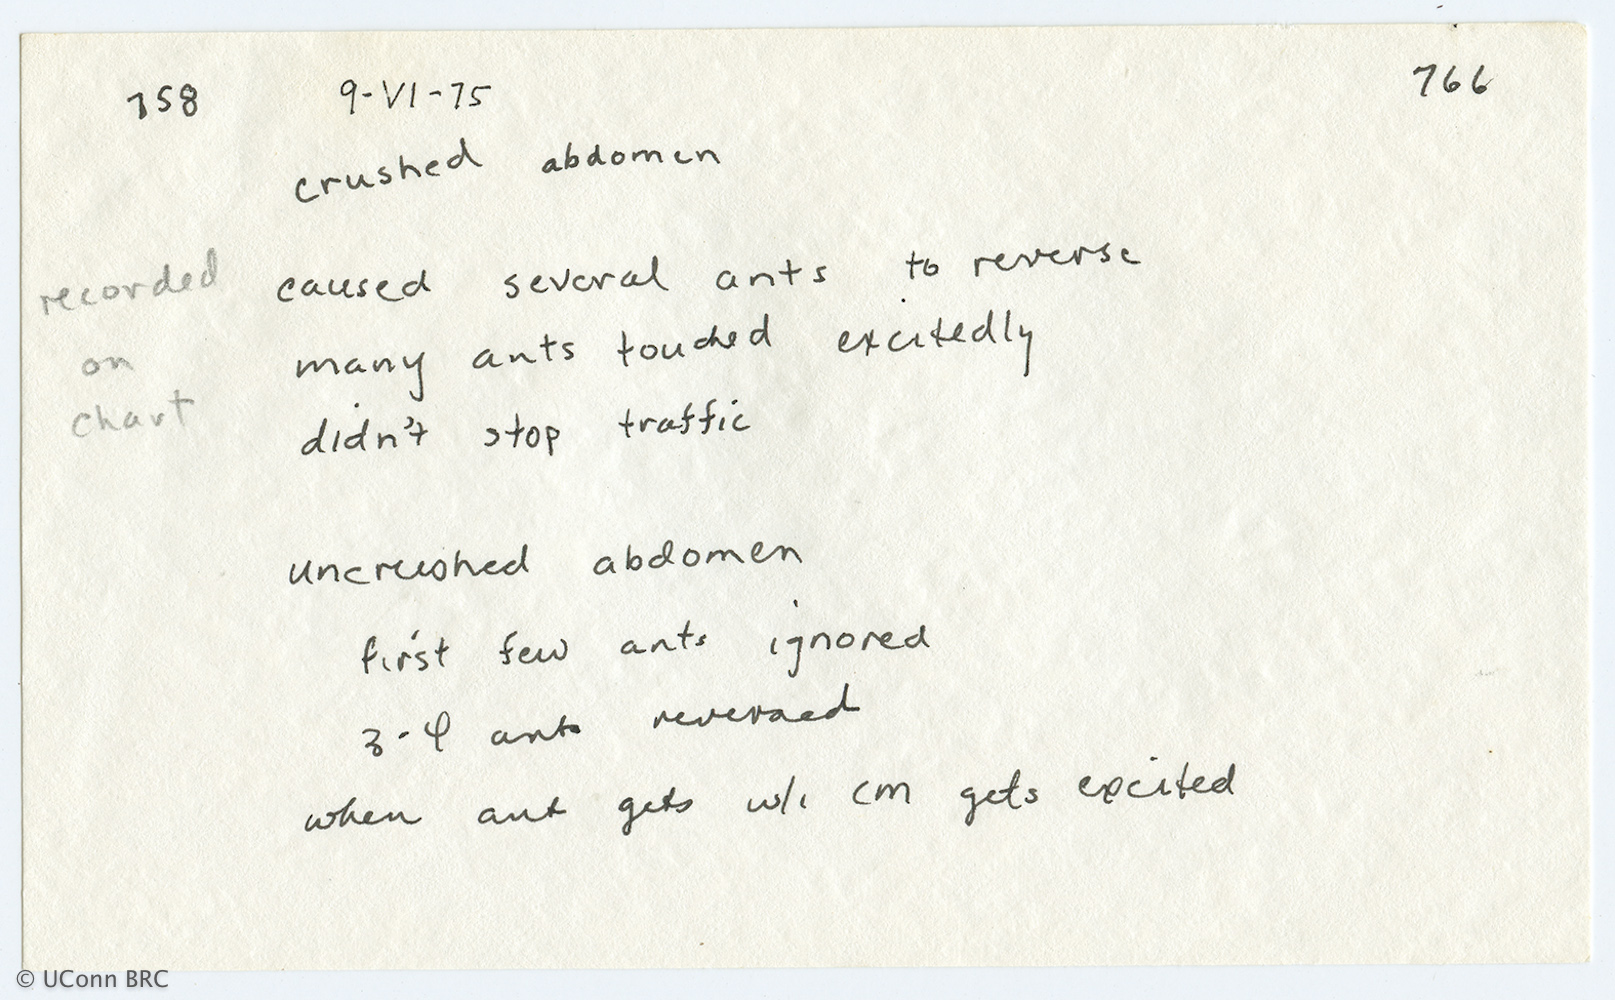 758 9-VI-75 766
crushed abdomen
recorded caused several ants to reverse
on many ants touched excitedly
chart didn't stop traffic
uncrushed abdomen
first few ants ignored
3-4 ants reversed
when ant gets w/i cm gets excited
© UConn BRC